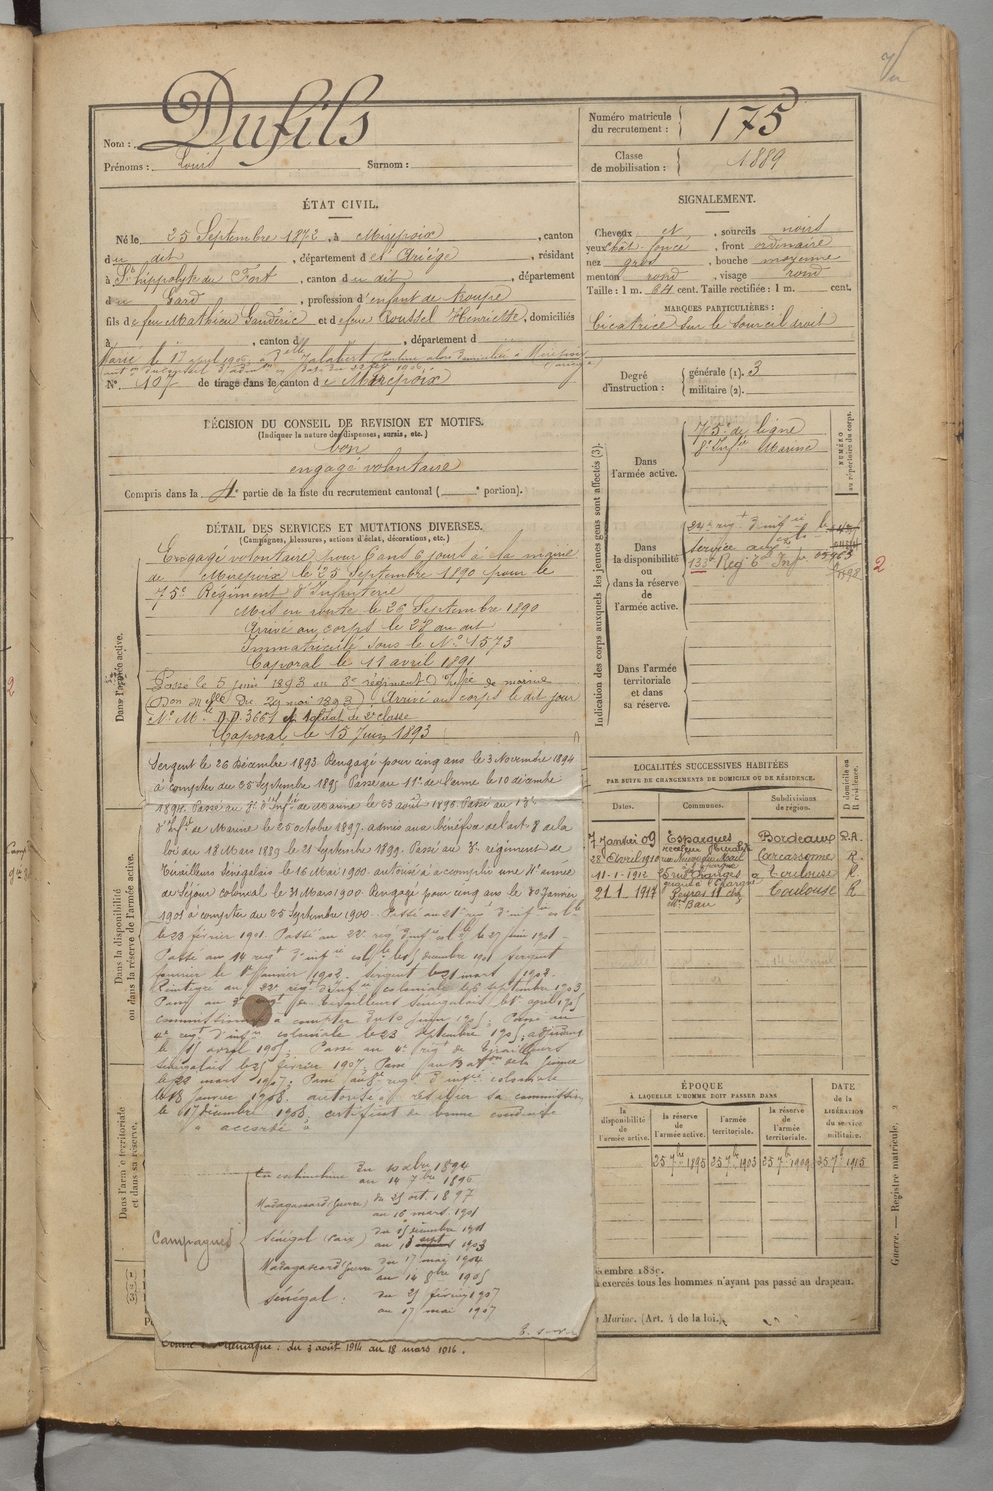 Vu
Nom : Dufils
Prénoms : Louis Surnom :
Numéro matricule du recrutement : 175
Classe de mobilisation : 1889
ÉTAT CIVIL.
Né le 25 Septembre 1872, à Mirepoix, canton
du dit, département de l'Ariège, résidant
à St hippolyte du Fort, canton du dit, département
du Gard, profession d'enfant de troupe
fils de feu Mathieu Gaudéric et de feue Roussel Henriette, domiciliés
à , canton d , département d
Marié le 17 avril à Delle Jalabert domiciliée à Mirepoix
N° 107 de tirage dans le canton de Mirepoix
SIGNALEMENT.
Cheveux et , sourcils noirs
yeux chât. foncé , front ordinaire
nez gros , bouche moyenne
menton rond , visage rond
Taille : 1 m. 64 cent. Taille rectifiée : 1 m. cent.
MARQUES PARTICULIÈRES :
Cicatrice sur le sourcil droit
Degré d'instruction : générale (1). 3
militaire (2).
DÉCISION DU CONSEIL DE REVISION ET MOTIFS.
(Indiquer la nature des dispenses, sursis, etc.)
bon
engagé volontaire
Compris dans la 4e partie de la liste du recrutement cantonal ( portion).
DÉTAIL DES SERVICES ET MUTATIONS DIVERSES.
(Campagnes, blessures, actions d'éclat, décorations, etc.)
Dans l'armée active.
Engagé volontaire pour 6 ans 6 jours à la mairie
de Mirepoix le 25 Septembre 1890 pour le
75e Régiment d'Infanterie
Mis en route le 26 Septembre 1890
Arrivé au corps le 27 du dit
Immatriculé sous le N° 1573
Caporal le 11 avril 1891
Passé le 5 juin 1893 au 8e régiment d'Infie de marine
(Don melle du 29 mai 1893) Arrivé au corps le dit jour
N° Mle 3661 et soldat de 2e classe
Caporal le 15 Juin 1893
Sergent le 26 Décembre 1893. Rengagé pour cinq ans le 3 Novembre 1894
à compter du 25 Septembre 1895 Passé au 11e de l'arme le 10 décembre
1894. Passé au 7e d'Infie de Marine le 23 août 1896. Passé au 13e
d'Infie de Marine le 25 octobre 1897. admis aux bénéfices de l'art. 8 de la
loi du 18 Mars 1889 le 21 Septembre 1899. Passé au 3e régiment de
Tirailleurs Sénégalais le 16 Mai 1900. autorisé à accomplir une 4e année
de séjour colonial le 31 Mars 1900. Rengagé pour cinq ans le 30 Janvier
1901 à compter du 25 Septembre 1900. Passé au 21e régt d'infie colle
le 23 février 1901. Passé au 22e régt d'infie colle le 27 juin 1901
Passé au 14 regt d'infie colle le 15 décembre 1901 sergent
fourrier le 1er Janvier 1902. sergent le 21 mars 1903.
Réintégré au 22e régt d'Infie coloniale le 6 septembre 1903
Passé au 3e régt de tirailleurs Sénégalais le 1er avril 1905
commissionné à compter du 10 juin 1905. Passé au
4e régt d'infie coloniale le 23 septembre 1905, adjudant
le 15 avril 1905. Passé au 4e régt de tirailleurs
sénégalais le 25 février 1907. Passé au Baton de la Guinée
le 22 mars 1907. Passé au 8e régt d'infie coloniale
le 18 janvier 1908. autorisé à résilier sa commission
le 17 décembre 1908. certificat de bonne conduite
a accordé
Campagnes
En extrême du 10 xbre 1894
au 14 7bre 1896
Madagascar (guerre) du 25 oct 1897
au 16 mars 1901
Sénégal (Paix) du 15 décembre 1901
au 18 sept 1903
Madagascar (guerre) du 17 mai 1904
au 14 8bre 1905
Sénégal : du 25 février 1907
au 17 mai 1907
T. s. v. p.
Contre l'Allemagne : du 3 août 1914 au 18 mars 1916.
Dans la disponibilité ou dans la réserve de l'armée active.
Dans l'armée territoriale et dans sa réserve.
Indication des corps auxquels les jeunes gens sont affectés (3).
NUMÉRO au répertoire du corps.
Dans l'armée active.
75e de ligne
8e Infie Marine
Dans la disponibilité ou dans la réserve de l'armée active.
24e regt d'infie
service aux
133e Reg. d'Inf. 05963
2
Dans l'armée territoriale et dans sa réserve.
LOCALITÉS SUCCESSIVES HABITÉES
PAR SUITE DE CHANGEMENTS DE DOMICILE OU DE RÉSIDENCE.
Dates. Communes. Subdivisions de région. D domicile ou R résidence.
7 Janvier 09 Esparques Bordeaux R.A.
28 avril 1910 Carcassonne R.
11-1-1912 Toulouse R.
21.1.1917 Toulouse R
ÉPOQUE
À LAQUELLE L'HOMME DOIT PASSER DANS
la disponibilité de l'armée active.
la réserve de l'armée active.
l'armée territoriale.
la réserve de l'armée territoriale.
DATE de la LIBÉRATION du service militaire.
25 7bre 1895 25 7bre 1903 25 7bre 1909 25 7bre 1915
décembre 188
exercés tous les hommes n'ayant pas passé au drapeau.
Marine. (Art. 4 de la loi.)
Guerre. — Registre matricule. 2